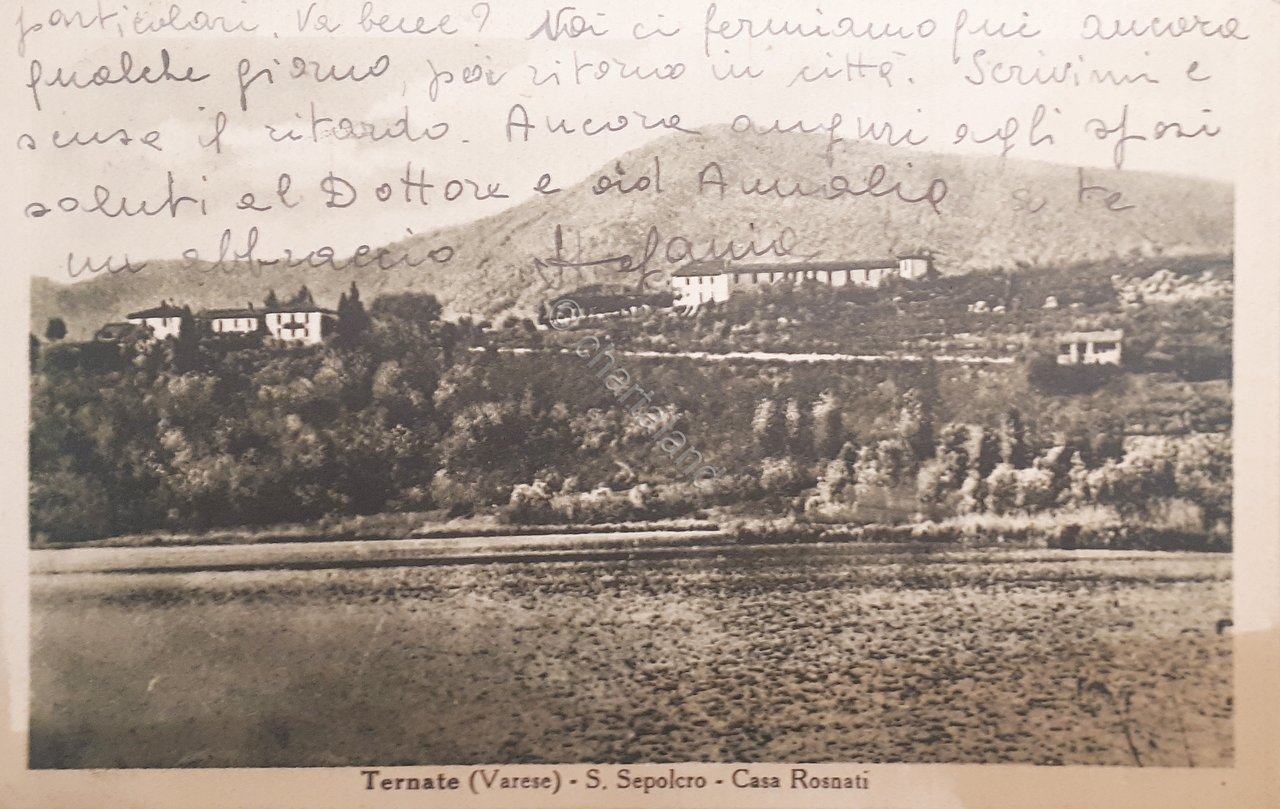 particolari. Va bene? Noi ci fermiamo qui ancora
qualche giorno, poi ritorno in città. Scrivimi e
scusa il ritardo. Ancora auguri agli sposi
saluti al Dottore e ad Amalia a te
un abbraccio Stefania
© chartaland
Ternate (Varese) - S. Sepolcro - Casa Rosnati